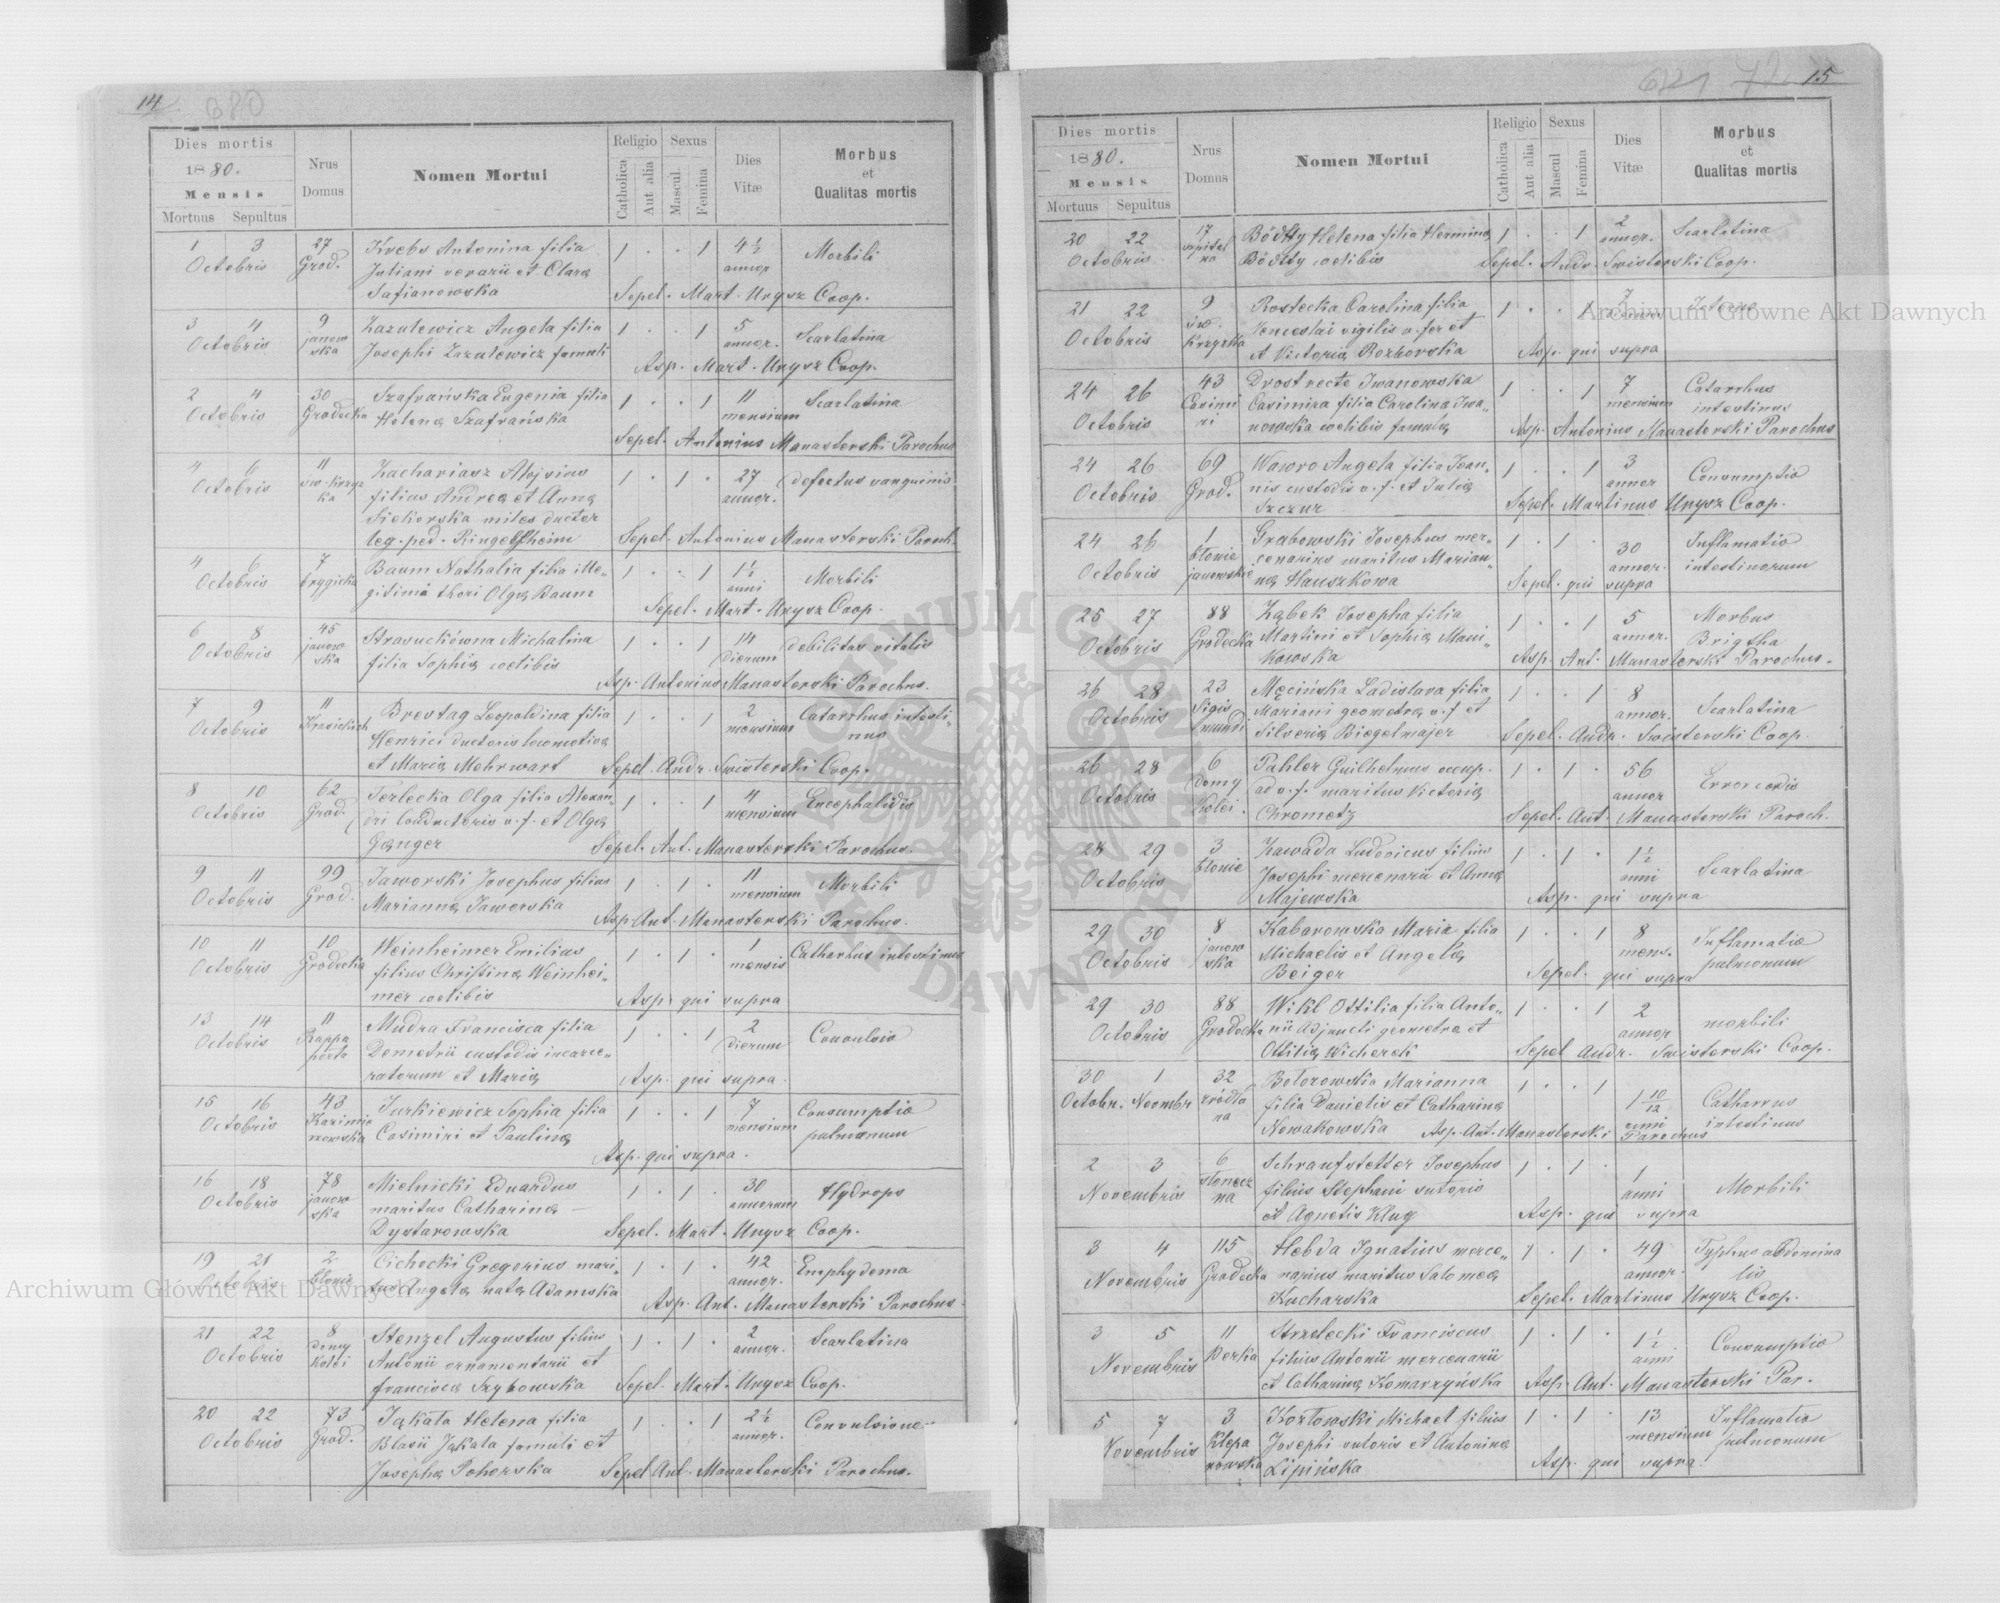 14 680
Dies mortis
1880.
Mensis
Mortuus Sepultus
Nrus
Domus
Nomen Mortui
Religio
Catholica
Aut alia
Sexus
Mascul.
Femina
Dies
Vitæ
Morbus
et
Qualitas mortis
1 3 27 Krebs Antonina filia 1 · · 1 4½ Morbili
Octobris Grod. Juliani verarii et Clara annor
Safianowska Sepel. Mart. Urysz Coop.
3 4 9 Zazulewicz Angela filia 1 · · 1 5 Scarlatina
Octobris janowska Josephi Zazulewicz famuli annor.
Asp. Mart. Urysz Coop.
2 4 30 Szafrańska Eugenia filia 1 · · 1 11 Scarlatina
Octobris Grodecka Helena Szafrańska mensium
Sepel. Antonius Manasterski Parochus
4 6 11 Zachariasz Alojsius 1 · 1 · 27 defectus sanguinis
Octobris św. Krzyżka filius Andrea et Anna annor.
Siekorska miles ductor
leg. ped. Ringelsheim Sepel. Antonius Manasterski Paroch.
4 6 7 Baum Nathalia filia ille- 1 · · 1 1½ Morbili
Octobris gitimi thori Olga Baum anni
Sepel. Mart. Urysz Coop.
6 8 45 Strasuckówna Michalina 1 · · 1 14 debilitas vitalis
Octobris janowska filia Sophia coelibis dierum
Asp. Antonius Manasterski Parochus.
7 9 11 Brestag Leopoldina filia 1 · · 1 2 Catarrhus intesti-
Octobris Henrici ductoris locomotiva mensium nus
et Maria Mehrwart Sepel. Andr. Swisterski Coop.
8 10 62 Terlecka Olga filia Alexan- 1 · · 1 4 Encephalidis
Octobris Grod. dri Conductoris v. f. et Olga mensium
Ganger Sepel. Ant. Manasterski Parochus.
9 11 99 Jaworski Josephus filius 1 · 1 · 11 Morbili
Octobris Grod. Marianna Jaworska mensium
Asp. Ant. Manasterski Parochus.
10 11 10 Weinheimer Emilius 1 · 1 · 1 Catharhus intestinus
Octobris Grodecka filius Christina Weinhei- mensis
mer coelibis Asp. qui supra
13 14 11 Mudra Francisca filia 1 · · 1 2 Convulsio
Octobris Rappaporta Demetrii custodis incarce- dierum
ratorum et Maria Asp. qui supra.
15 16 43 Jurkiewicz Sophia filia 1 · · 1 7 Consumptio
Octobris Casimiri et Paulina mensium pulmonum
Asp. qui supra.
16 18 78 Mielnicki Eduardus 1 · 1 · 30 Hydrops
Octobris janowska maritus Catharina annorum
Dystarowska Sepel. Mart. Urysz Coop.
19 21 2 Cichocki Gregorius mari- 1 · 1 · 42 Emphydema
Octobris błonie tus Angela nata Adamska annor.
Asp. Ant. Manasterski Parochus.
21 22 8 Stenzel Augustus filius 1 · 1 · 2 Scarlatina
Octobris domy kolei Antonii ornamentarii et annor.
francisca Szybowska Sepel. Mart. Urysz Coop.
20 22 73 Jąkała Helena filia 1 · · 1 2½ Convulsione
Octobris Grod. Blasii Jakala famuli et annor.
Josepha Pohorska Sepel. Ant. Manasterski Parochus.
15
Dies mortis
1880.
Mensis
Mortuus Sepultus
Nrus
Domus
Nomen Mortui
Religio
Catholica
Aut alia
Sexus
Mascul
Femina
Dies
Vitæ
Morbus
et
Qualitas mortis
20 22 17 Helena filia Hermina 1 · · 1 2 Scarlatina
Octobris coelibis annor.
Sepel. Andr. Swisterski Coop.
21 22 9 Rostecka Carolina filia 1 · · 1 Icterus
Octobris św. Krzyżka Venceslai vigilis v. fer et
et Victoria Rozborska Asp. qui supra
24 26 43 Drost recte Iwanowska 1 · · 1 7 Catarrhus
Octobris Casimiri Casimira filia Carolina Iwa- mensium intestinus
nowska coelibis famula Asp. Antonius Manasterski Parochus
24 26 69 Waworo Angela filia Ioan- 1 · · 1 3 Consumptio
Octobris Grod. nis custodis v. f. et Julia annor
Szczur Sepel. Martinus Urysz Coop.
24 26 1 Grabowski Josephus mer- 1 · 1 · 30 Inflamatio
Octobris błonie janowskie cenarius maritus Marian- annor. intestinorum
na Hauszkowa Sepel. qui supra
25 27 88 Ząbek Josepha filia 1 · · 1 5 Morbus
Octobris Grodecka Martini et Sophia Mani- annor. Brigtha
kowska Asp. Ant. Manasterski Parochus.
26 28 23 Męcińska Ladislava filia 1 · · 1 8 Scarlatina
Octobris Sigismundi Mariani geometra v. f et annor.
Silveria Biegelmajer Sepel. Andr. Swisterski Coop.
26 28 6 Pahler Guilhelmus occup. 1 · 1 · 56 Error cordis
Octobris Domy Kolei ad v. f. maritus Victoria annor
Chrometz Sepel. Ant. Manasterski Paroch.
28 29 3 Zawada Ludovicus filius 1 · 1 · 1½ Scarlatina
Octobris błonie Josephi mercenarii et Anna anni
Majewska Asp. qui supra
29 30 8 Kabarowska Maria filia 1 · · 1 8 Inflamatio
Octobris janowska Michaelis et Angela mens. pulmonum
Beiger Sepel. qui supra
29 30 88 Wikl Ottilia filia Anto- 1 · · 1 2 morbili
Octobris Grodecka nii Adjuncti geometra et annor
Ottilia Wicherek Sepel Andr. Swisterski Coop.
30 1 32 Botorowska Marianna 1 · · 1 1 10/12 Catharrus
Octobr. Novembr źródlana filia Danielis et Catharina anni intestinus
Nowakowska Asp. Ant. Manasterski Parochus
2 3 6 Schraufstetter Josephus 1 · 1 · 1 Morbili
Novembris słoneczna filius Stephani sutoris anni
et Agnetis Klug Asp. qui supra
3 4 115 Hebda Ignatius merce- 1 · 1 · 49 Typhus abdomina
Novembris Grodecka narius maritus Salomea annor. lis
Kucharska Sepel. Martinus Urysz Coop.
3 5 11 Strzelecki Franciscus 1 · 1 · 1½ Consumptio
Novembris Berka filius Antonii mercenarii anni
et Catharina Komarzyńska Asp. Ant. Manasterski Par.
5 7 3 Kozłowski Michael filius 1 · 1 · 13 Inflamatio
Novembris Kleparowska Josephi sutoris et Antonina mensium pulmonum
Lipińska Asp. qui supra.
Archiwum Główne Akt Dawnych
Archiwum Główne Akt Dawnych
ARCHIWUM GŁÓWNE AKT DAWNYCH